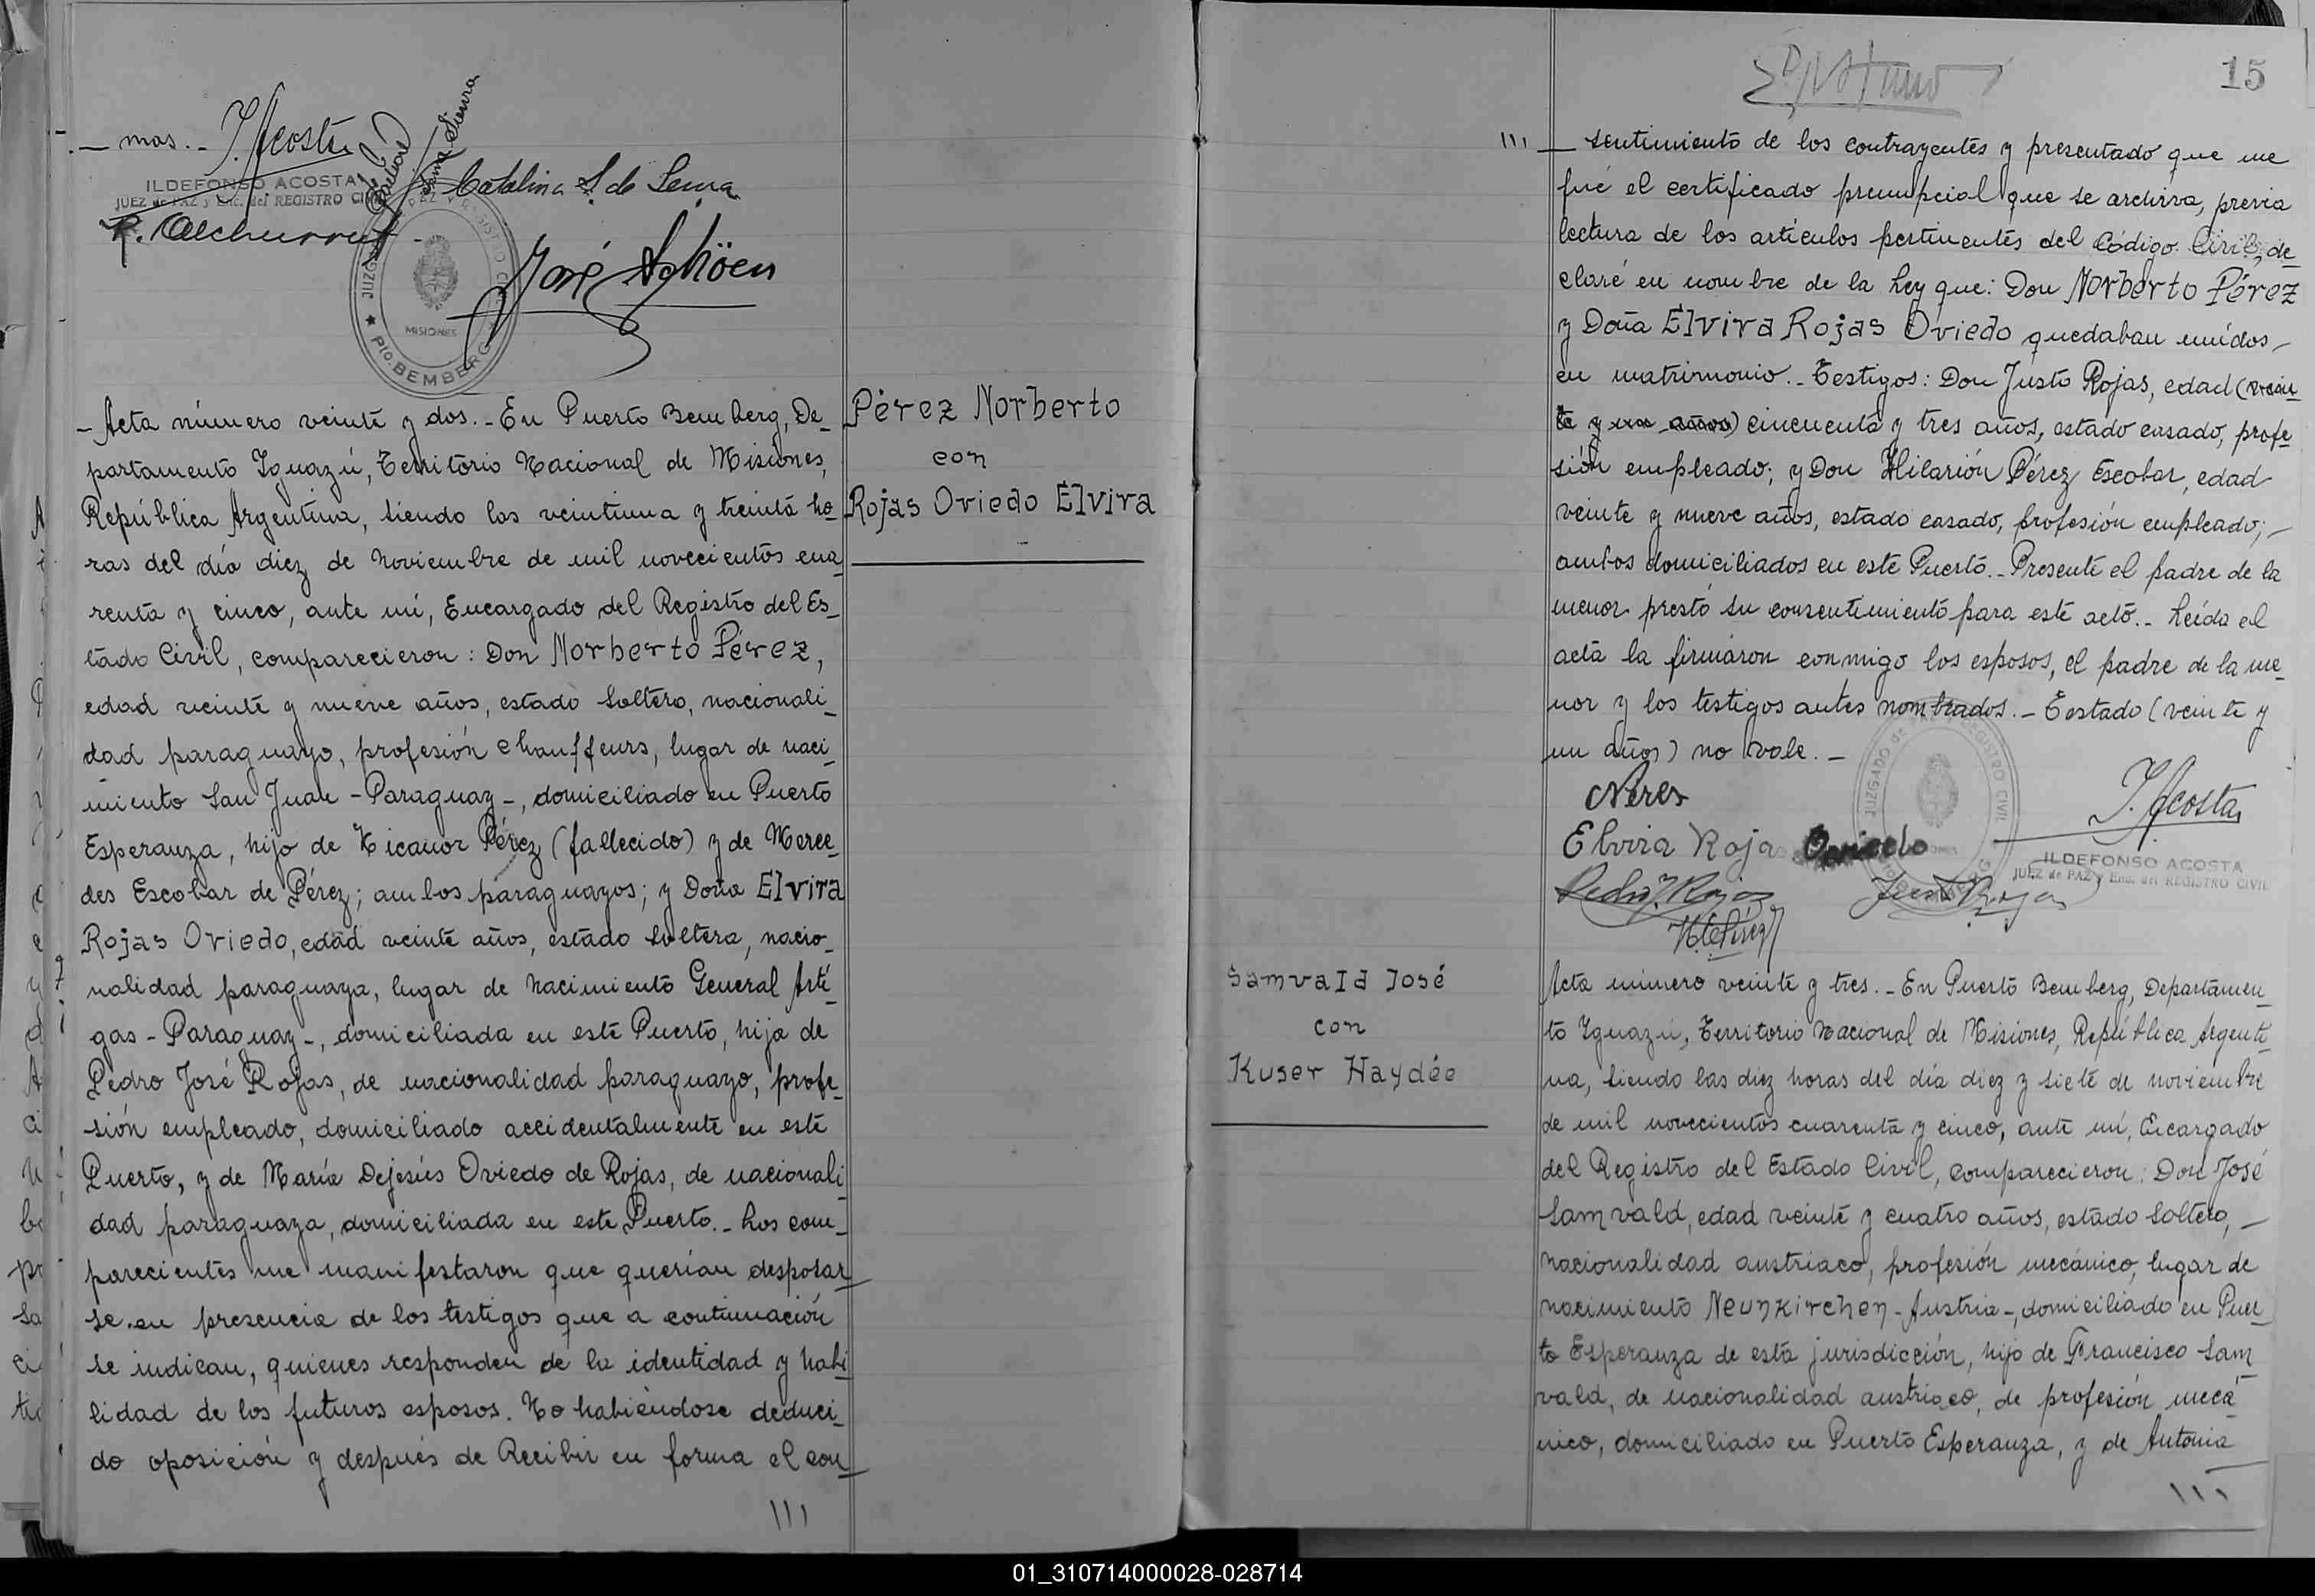 — mas.- I. Acosta
ILDEFONSO ACOSTA
JUEZ de PAZ y Enc. del REGISTRO CIVIL
Catalina S. de Senra
José Schöen
MISIONES
Pto. BEMBERG
— Acta número veinte y dos.- En Puerto Bemberg, De-
partamento Iguazú, Territorio Nacional de Misiones,
República Argentina, siendo las veintiuna y treinta ho-
ras del día diez de Noviembre de mil novecientos cua-
renta y cinco, ante mí, Encargado del Registro del Es-
tado Civil, comparecieron: Don Norberto Pérez,
edad veinte y nueve años, estado soltero, nacionali-
dad paraguayo, profesión chauffeurs, lugar de naci-
miento San Juan - Paraguay -, domiciliado en Puerto
Esperanza, hijo de Nicanor Pérez (fallecido) y de Merce-
des Escobar de Pérez; ambos paraguayos; y Doña Elvira
Rojas Oviedo, edad veinte años, estado soltera, nacio-
nalidad paraguaya, lugar de nacimiento General Arti-
gas - Paraguay -, domiciliada en este Puerto, hija de
Pedro José Rojas, de nacionalidad paraguayo, profe-
sión empleado, domiciliado accidentalmente en este
Puerto, y de María Dejesús Oviedo de Rojas, de nacionali-
dad paraguaya, domiciliada en este Puerto.- Los com-
parecientes me manifestaron que querían desposar-
se en presencia de los testigos que a continuación
se indican, quienes responden de la identidad y habi-
lidad de los futuros esposos. No habiéndose deduci-
do oposición y después de Recibir en forma el con-
///
Pérez Norberto
con
Rojas Oviedo Elvira
15
/// — sentimiento de los contrayentes y presentado que me
fué el certificado prenupcial que se archiva, previa
lectura de los artículos pertinentes del Código Civil, de-
claré en nombre de la Ley que: Don Norberto Pérez
y Doña Elvira Rojas Oviedo quedaban unídos -
en matrimonio.- Testigos: Don Justo Rojas, edad (vein-
te y un años) cincuenta y tres años, estado casado, profe-
sión empleado; y Don Hilarión Pérez Escobar, edad
veinte y nueve años, estado casado, profesión empleado; -
ambos domiciliados en este Puerto.- Presente el padre de la
menor prestó su consentimiento para este acto.- Leída el
acta la firmaron conmigo los esposos, el padre de la me-
nor y los testigos antes nombrados.- Testado (veinte y
un años) no vale.-
NPerez
I. Acosta
Elvira Roja Oviedo
JUZGADO de
REGISTRO CIVIL
ILDEFONSO ACOSTA
JUEZ de PAZ y Enc. del REGISTRO CIVIL
Pedro J. Rojas
Justo Rojas
Samvald José
con
Kuser Haydée
Acta número veinte y tres.- En Puerto Bemberg, Departamen-
to Iguazú, Territorio Nacional de Misiones, República Argenti-
na, siendo las diez horas del día diez y siete de noviembre
de mil novecientos cuarenta y cinco, ante mí, Encargado
del Registro del Estado Civil, comparecieron: Don José
Samvald, edad veinte y cuatro años, estado soltero, -
nacionalidad austriaco, profesión mecánico, lugar de
nacimiento Neunkirchen - Austria -, domiciliado en Puer-
to Esperanza de esta jurisdicción, hijo de Francisco Sam-
vald, de nacionalidad austriaco, de profesión mecá-
nico, domiciliado en Puerto Esperanza, y de Antonia
///
01_310714000028-028714